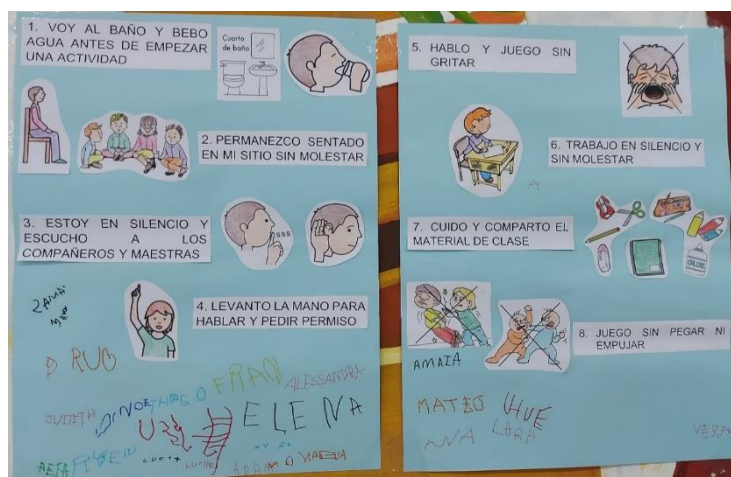 1. VOY AL BAÑO Y BEBO
AGUA ANTES DE EMPEZAR
UNA ACTIVIDAD
Cuarto
de baño
2. PERMANEZCO SENTADO
EN MI SITIO SIN MOLESTAR
3. ESTOY EN SILENCIO Y
ESCUCHO A LOS
COMPAÑEROS Y MAESTRAS
sss
4. LEVANTO LA MANO PARA
HABLAR Y PEDIR PERMISO
FRAN
ALESSANDRA
JUDITH
THIAGO
ELENA
5. HABLO Y JUEGO SIN
GRITAR
6. TRABAJO EN SILENCIO Y
SIN MOLESTAR
7. CUIDO Y COMPARTO EL
MATERIAL DE CLASE
GLUE
8. JUEGO SIN PEGAR NI
EMPUJAR
AMAIA
MATEO
ANA
LARA
VERA